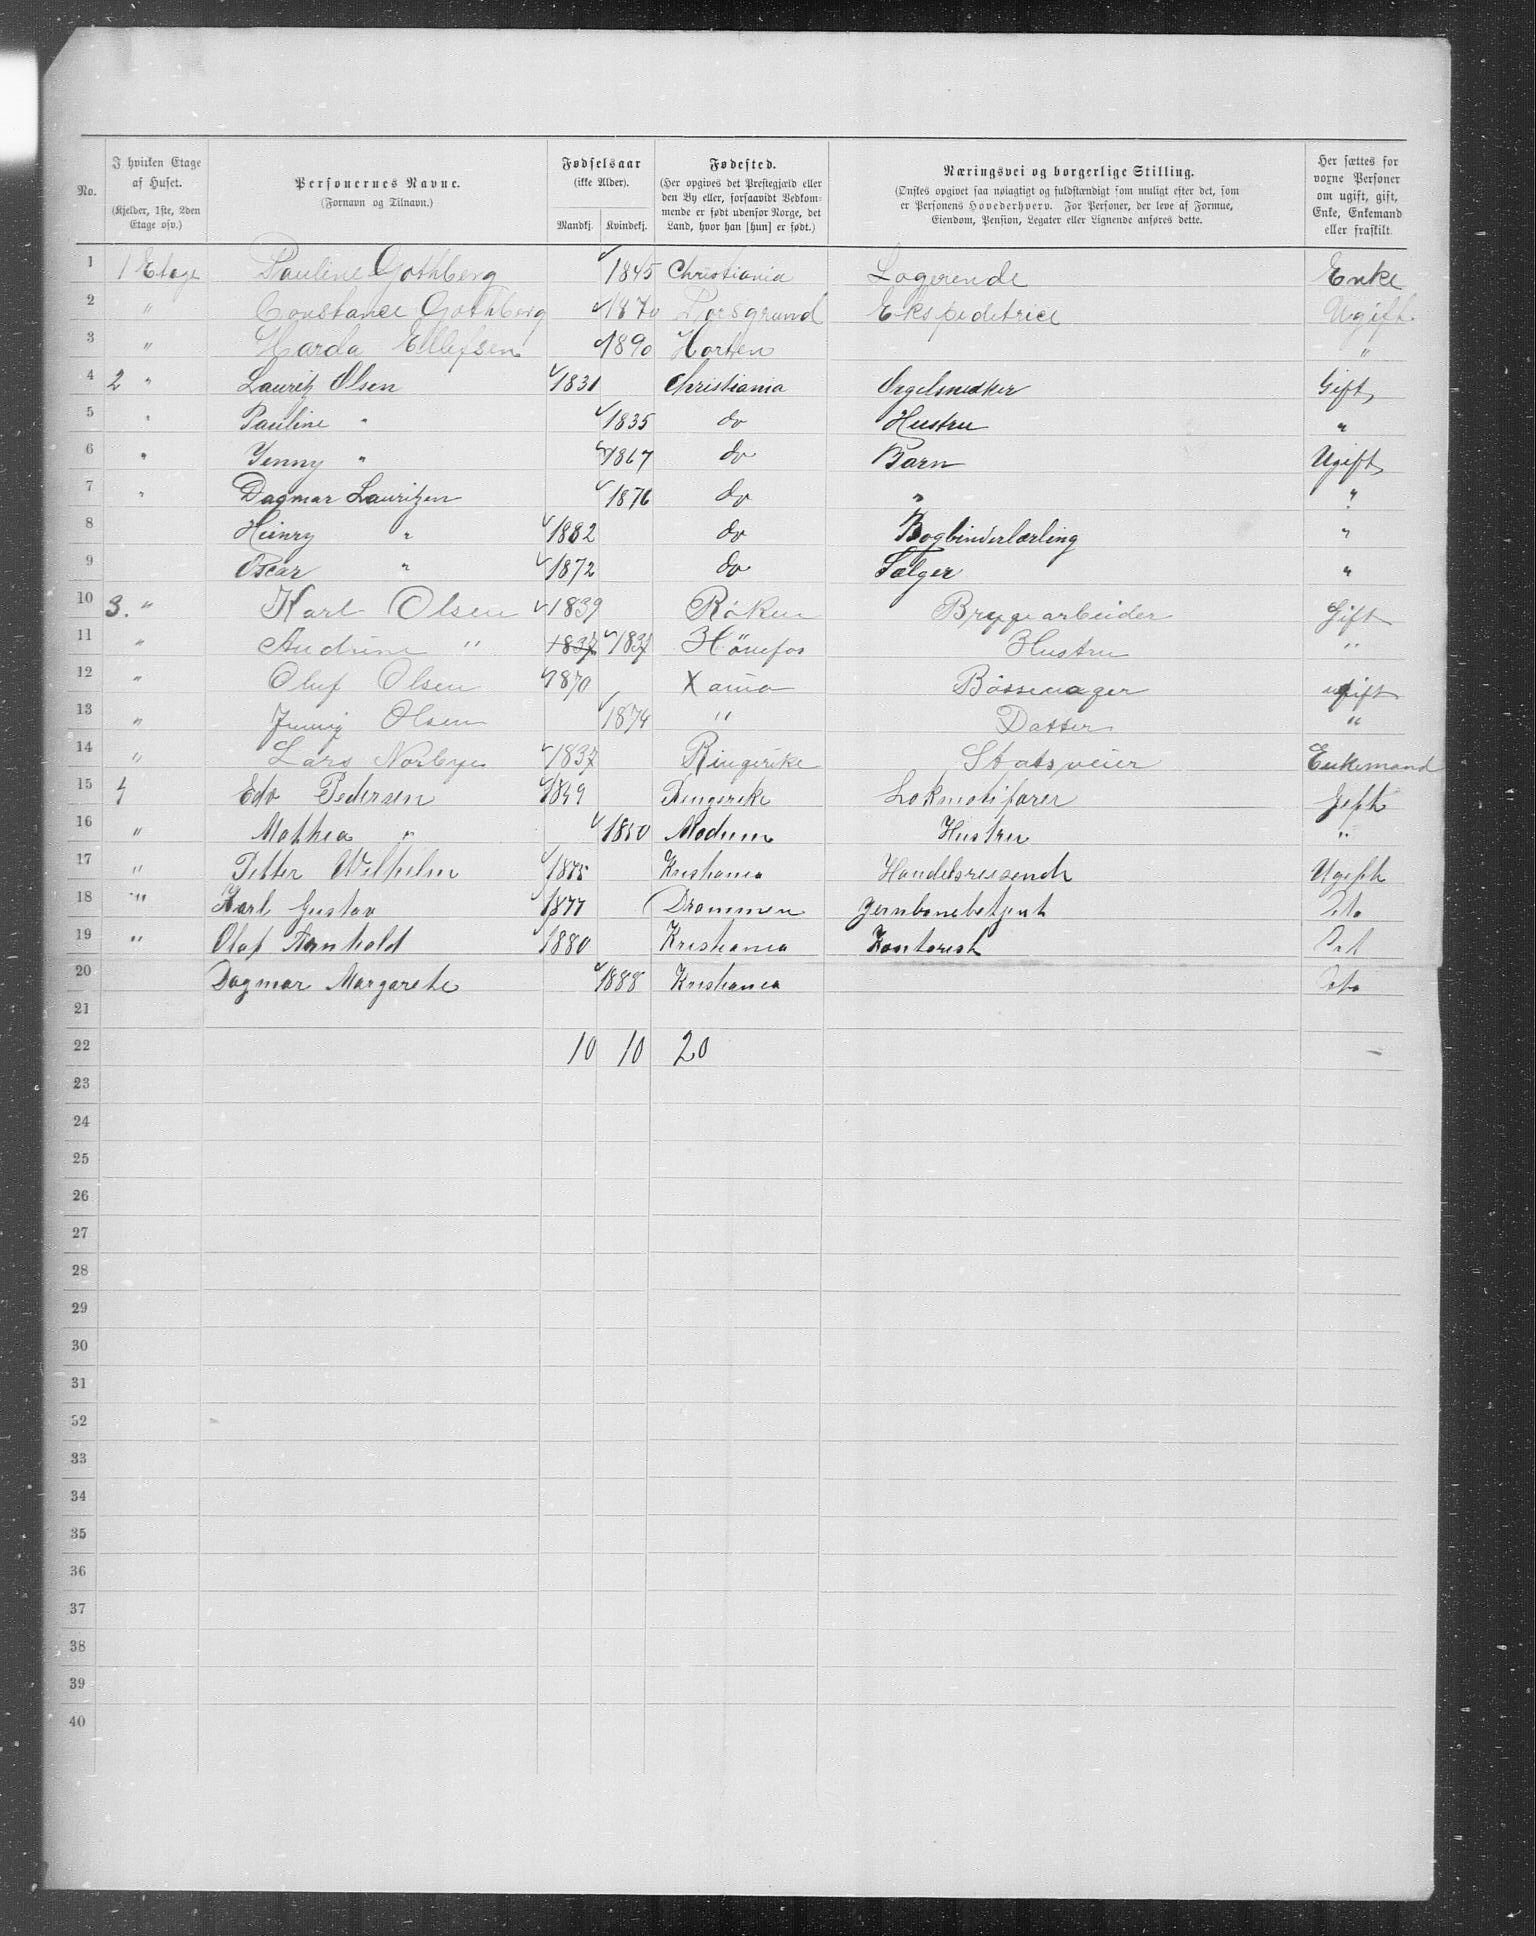 No. | I hvilken Etage af Huset. (Kjelder, 1ste, 2den Etage osv.) | Personernes Navne. (Fornavn og Tilnavn.) | Fødselsaar (ikke Alder). Mandkj. | Kvindekj. | Fødested. (Her opgives det Prestegjæld eller den By eller, forsaavidt Vedkommende er født udenfor Norge, det Land, hvor han [hun] er født.) | Næringsvei og borgerlige Stilling. (Ønskes opgivet saa nøiagtigt og fuldstændigt som muligt efter det, som er Personens Hovederhverv. For Personer, der leve af Formue, Eiendom, Pension, Legater eller Lignende anføres dette. | Her sættes for voxne Personer om ugift, gift, Enke, Enkemand eller fraskilt.
1 1 Etage Pauline Gothberg 1845 Christiania Logerende Enke
2 " Constance Gothberg 1870 Porsgrund Ekspeditrice Ugift
3 " Harda Ellefsen 1890 Horten "
4 2 " Lauritz Olsen 1831 Christiania Orgelsnekker Gift
5 " Pauline " 1835 do Hustru "
6 " Jenny " 1867 do Barn Ugift
7 " Dagmar Lauritzen 1876 do " "
8 Heinry " 1882 do Bogbinderlærling "
9 Oscar " 1872 do Sælger "
10 3. " Karl Olsen 1839 Röken Bryggearbeider Gift
11 " Andrine " 1837 1837 Hönefos Hustru "
12 " Oluf Olsen 1870 X ania Bössemager ugift
13 " Jenny Olsen 1874 " Datter "
14 " Lars Norbye 1837 Ringerike Statsveier Enkemand
15 4 Edv Pedersen 1849 Ringerike Lokmotifører Gift
16 " Mathea " 1850 Modum Hustru "
17 " Petter Wilhelm 1875 Kristiania Handelsreisende Ugift
18 " Karl Gustav 1877 Drammen Jernbanebetjent Dto
19 " Olaf Arnhold 1880 Kristiania Kontorist Dto
20 Dagmar Margarete 1888 Kristiania Dto
21
22 10 10 20
23
24
25
26
27
28
29
30
31
32
33
34
35
36
37
38
39
40